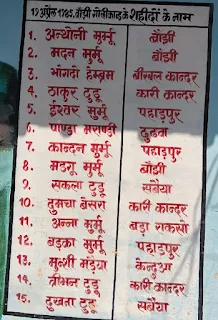 19 अप्रैल 1985, बाँझी गोलीकाण्ड के शहीदों के नाम
1. अन्थोनी मुर्मू बाँझी
2. मदन मुर्मू बाँझी
3. भागदो हेम्ब्रम बीरबल कान्दर
4. ठाकुर टुडू कारी कान्दर
5. ईश्वर मुर्मू पहाड़पुर
6. पाण्डा मराण्डी दुहवा
7. कान्दन मुर्मू पहाड़पुर
8. मडगू मुर्मू बाँझी
9. सकला टुडू सबैया
10. दुमचा बेसरा कारी कान्दर
11. अन्ना मुर्मू बड़ा रकसो
12. बड़का मुर्मू पहाड़पुर
13. मुन्शी मड़ैया केन्दुआ
14. त्रीभन टुडू कारी कान्दर
15. दुखना टुडू सबैया